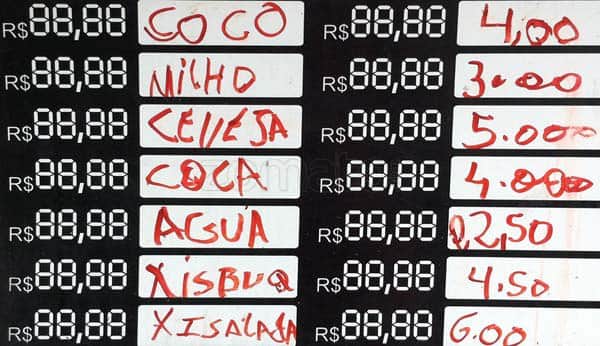 R$88,88 COCO R$88,88 4,00
R$88,88 MILHO R$88,88 3.000
R$88,88 CEVEJA R$88,88 5.000
R$88,88 COCA R$88,88 4.000
R$88,88 AGUA R$88,88 2,50
R$88,88 XISBUQ R$88,88 4.50
R$88,88 XISALADA R$88,88 6.00